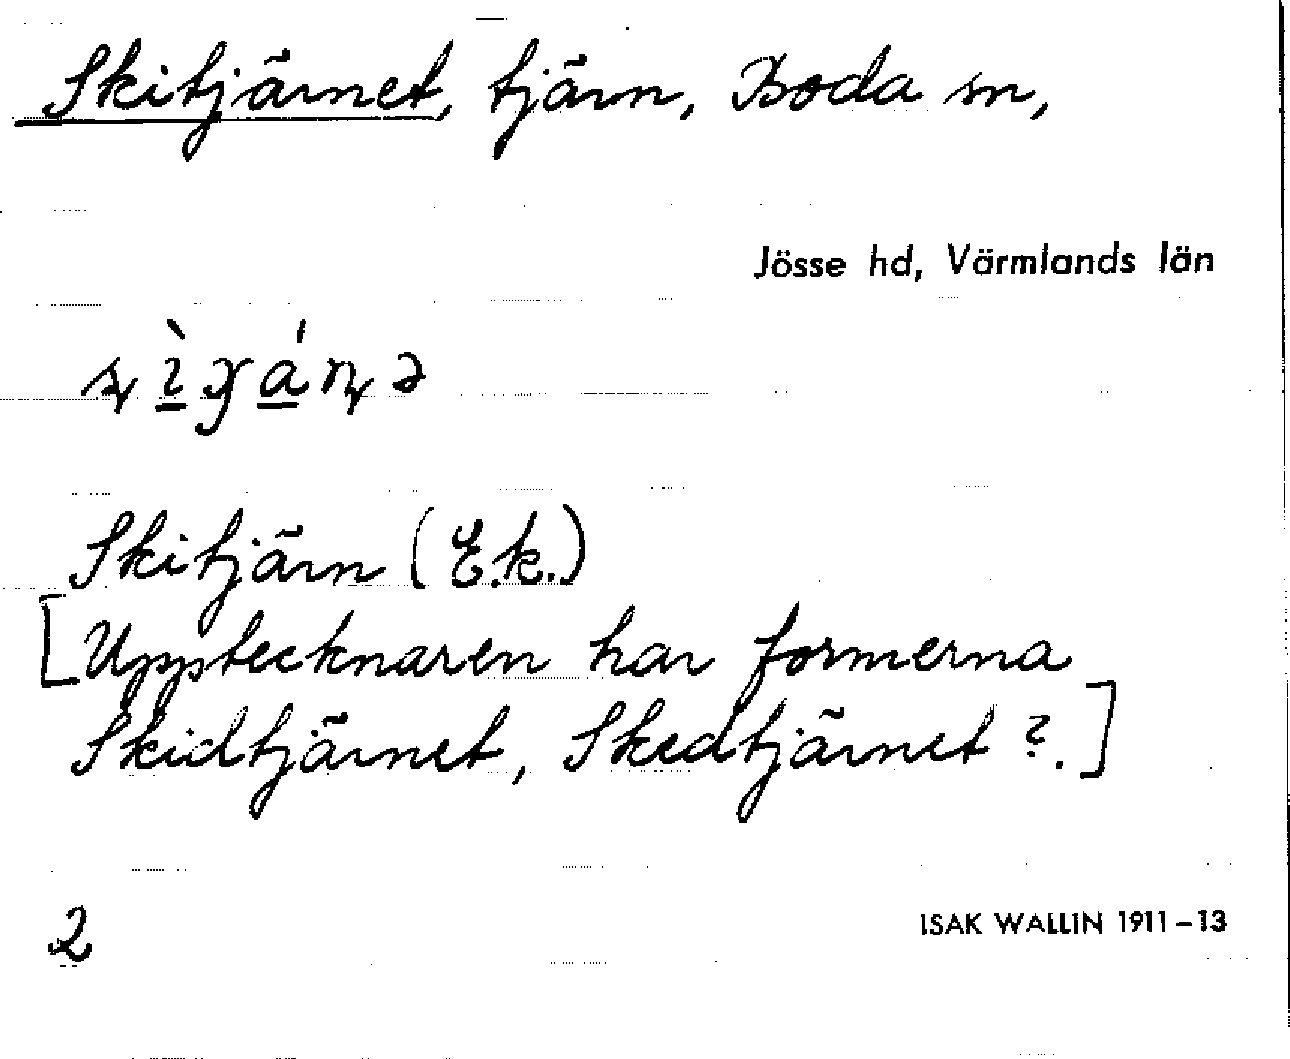 Skitjärnet, tjärn, Boda sn,
Jösse hd, Värmlands län
Skitjärn (E.k.)
[Upptecknaren har formerna
Skidtjärnet, Skedtjärnet ?.]
2
ISAK WALLIN 1911–13